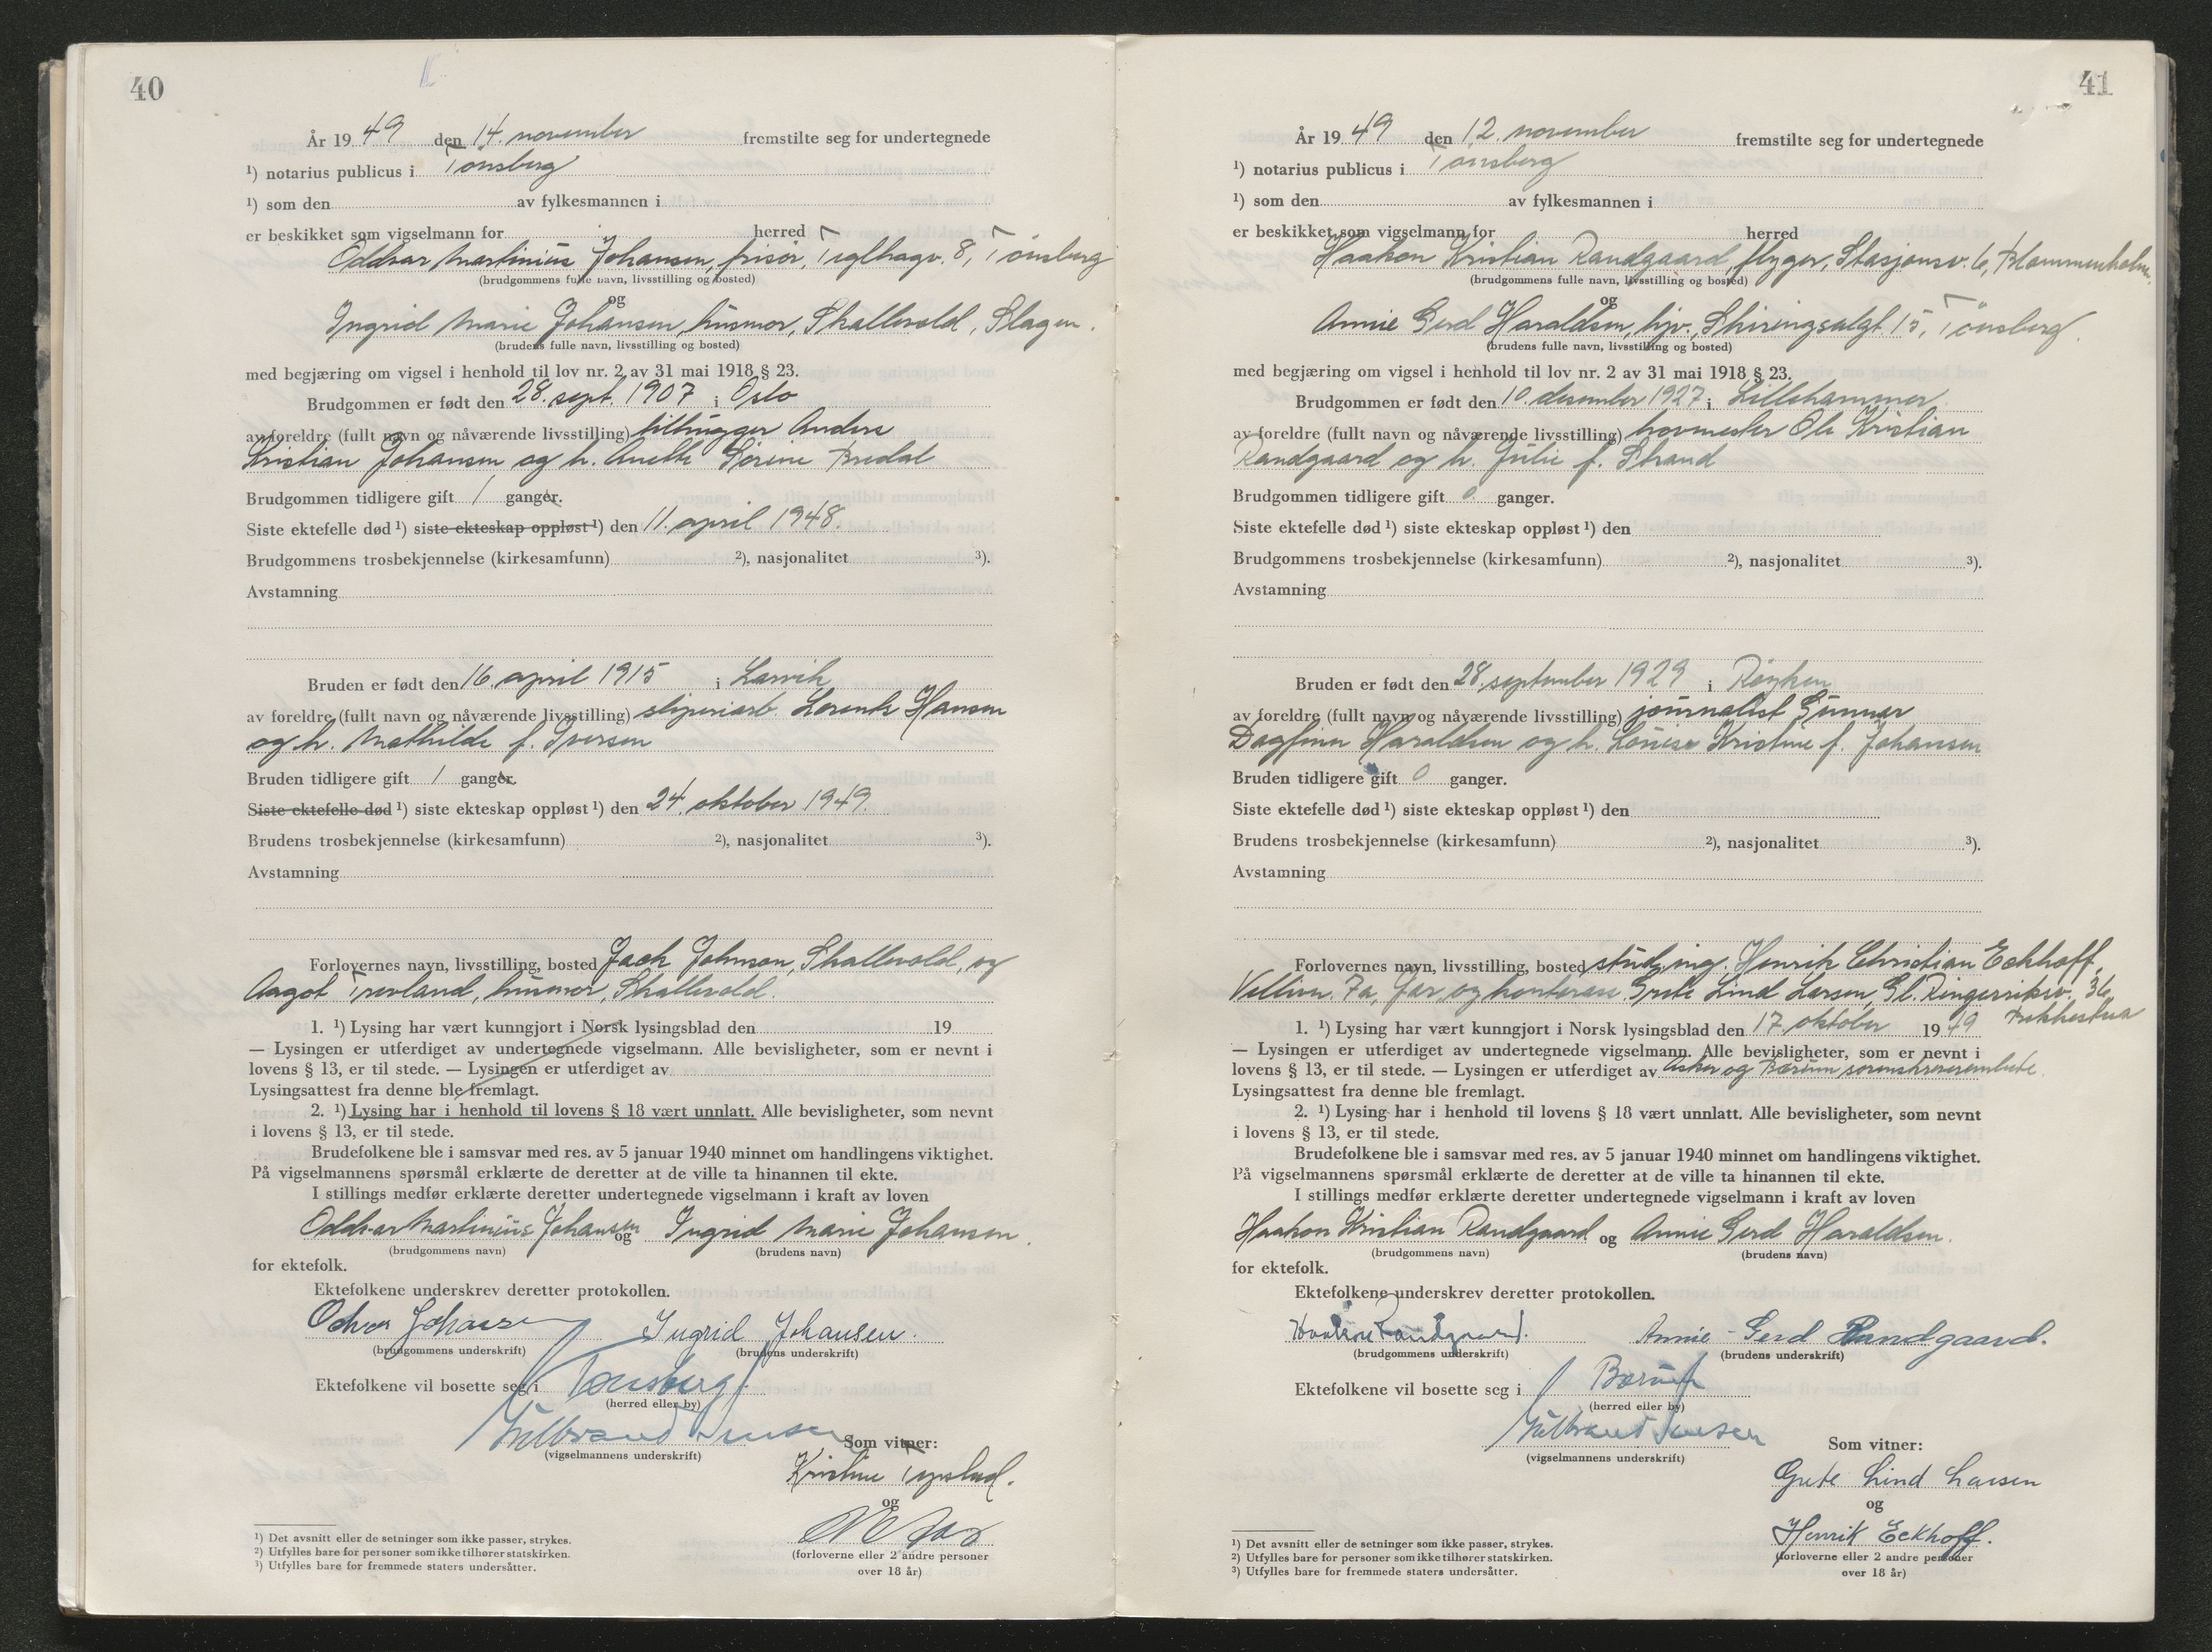 40
År 1949 den 14. november fremstilte seg for undertegnede
¹) notarius publicus i Tönsberg
¹) som den av fylkesmannen i
er beskikket som vigselmann for herred
Oddvar Martinius Johansen, frisör, Teglhagv. 8, Tönsberg
(brudgommens fulle navn, livsstilling og bosted)
og
Ingrid Marie Johansen, husmor, Skallevold, Slagen.
(brudens fulle navn, livsstilling og bosted)
med begjæring om vigsel i henhold til lov nr. 2 av 31 mai 1918 § 23.
Brudgommen er født den 28. sept. 1907 i Oslo
av foreldre (fullt navn og nåværende livsstilling) filhugger Anders
Kristian Johansen og h. Anette Sörine Bredal
Brudgommen tidligere gift 1 ganger.
Siste ektefelle død ¹) siste ekteskap oppløst ¹) den 11. april 1948.
Brudgommens trosbekjennelse (kirkesamfunn) ²), nasjonalitet ³).
Avstamning
Bruden er født den 16. april 1915 i Larvik
av foreldre (fullt navn og nåværende livsstilling) sliperiarb. Lorentz Hansen
og h. Mathilde f. Iversen
Bruden tidligere gift 1 ganger.
Siste ektefelle død ¹) siste ekteskap oppløst ¹) den 24. oktober 1949.
Brudens trosbekjennelse (kirkesamfunn) ²), nasjonalitet ³).
Avstamning
Forlovernes navn, livsstilling, bosted Jack Johnson, Skallevold, og
Aagot Trevland, husmor, Skallevold.
1. ¹) Lysing har vært kunngjort i Norsk lysingsblad den 19
— Lysingen er utferdiget av undertegnede vigselmann. Alle bevisligheter, som er nevnt i
lovens § 13, er til stede. — Lysingen er utferdiget av
Lysingsattest fra denne ble fremlagt.
2. ¹) Lysing har i henhold til lovens § 18 vært unnlatt. Alle bevisligheter, som nevnt
i lovens § 13, er til stede.
Brudefolkene ble i samsvar med res. av 5 januar 1940 minnet om handlingens viktighet.
På vigselmannens spørsmål erklærte de deretter at de ville ta hinannen til ekte.
I stillings medfør erklærte deretter undertegnede vigselmann i kraft av loven
Oddvar Martinius Johansen og Ingrid Marie Johansen.
(brudgommens navn) (brudens navn)
for ektefolk.
Ektefolkene underskrev deretter protokollen.
Oddvar Johansen Ingrid Johansen.
(brudgommens underskrift) (brudens underskrift)
Ektefolkene vil bosette seg i Tønsberg.
(herred eller by)
(vigselmannens underskrift)
Som vitner:
Kristine
og
(forloverne eller 2 andre personer
over 18 år)
¹) Det avsnitt eller de setninger som ikke passer, strykes.
²) Utfylles bare for personer som ikke tilhører statskirken.
³) Utfylles bare for fremmede staters undersåtter.
41
År 1949 den 12. november fremstilte seg for undertegnede
¹) notarius publicus i Tönsberg
¹) som den av fylkesmannen i
er beskikket som vigselmann for herred
Haakon Kristian Randgaard, flyger, Stasjonsv. 6, Blommenholm,
(brudgommens fulle navn, livsstilling og bosted)
og
Annie Gerd Haraldsen, hjv., Skiringsalgt. 15, Tönsberg.
(brudens fulle navn, livsstilling og bosted)
med begjæring om vigsel i henhold til lov nr. 2 av 31 mai 1918 § 23.
Brudgommen er født den 10. desember 1927 i Lillehammer
av foreldre (fullt navn og nåværende livsstilling) hovmester Ole Kristian
Randgaard og h. Julie f. Strand
Brudgommen tidligere gift 0 ganger.
Siste ektefelle død ¹) siste ekteskap oppløst ¹) den
Brudgommens trosbekjennelse (kirkesamfunn) ²), nasjonalitet ³).
Avstamning
Bruden er født den 28. september 1929 i Röyken
av foreldre (fullt navn og nåværende livsstilling) journalist Gunnar
Dagfinn Haraldsen og h. Louise Kristine f. Johansen
Bruden tidligere gift 0 ganger.
Siste ektefelle død ¹) siste ekteskap oppløst ¹) den
Brudens trosbekjennelse (kirkesamfunn) ²), nasjonalitet ³).
Avstamning
Forlovernes navn, livsstilling, bosted stud. ing. Henrik Christian Eckhoff,
Vellivn. 7a, Jar, og kontorass. Grete Lind Larsen, Gl. Ringeriksv. 36
Bekkestua
1. ¹) Lysing har vært kunngjort i Norsk lysingsblad den 17. oktober 1949
— Lysingen er utferdiget av undertegnede vigselmann. Alle bevisligheter, som er nevnt i
lovens § 13, er til stede. — Lysingen er utferdiget av Asker og Bærum sorenskriverembete.
Lysingsattest fra denne ble fremlagt.
2. ¹) Lysing har i henhold til lovens § 18 vært unnlatt. Alle bevisligheter, som nevnt
i lovens § 13, er til stede.
Brudefolkene ble i samsvar med res. av 5 januar 1940 minnet om handlingens viktighet.
På vigselmannens spørsmål erklærte de deretter at de ville ta hinannen til ekte.
I stillings medfør erklærte deretter undertegnede vigselmann i kraft av loven
Haakon Kristian Randgaard og Annie Gerd Haraldsen.
(brudgommens navn) (brudens navn)
for ektefolk.
Ektefolkene underskrev deretter protokollen.
Haakon Randgaard. Annie-Gerd Randgaard.
(brudgommens underskrift) (brudens underskrift)
Ektefolkene vil bosette seg i Bærum
(herred eller by)
(vigselmannens underskrift)
Som vitner:
Grete Lind Larsen
og
Henrik Eckhoff.
(forloverne eller 2 andre personer
over 18 år)
¹) Det avsnitt eller de setninger som ikke passer, strykes.
²) Utfylles bare for personer som ikke tilhører statskirken.
³) Utfylles bare for fremmede staters undersåtter.